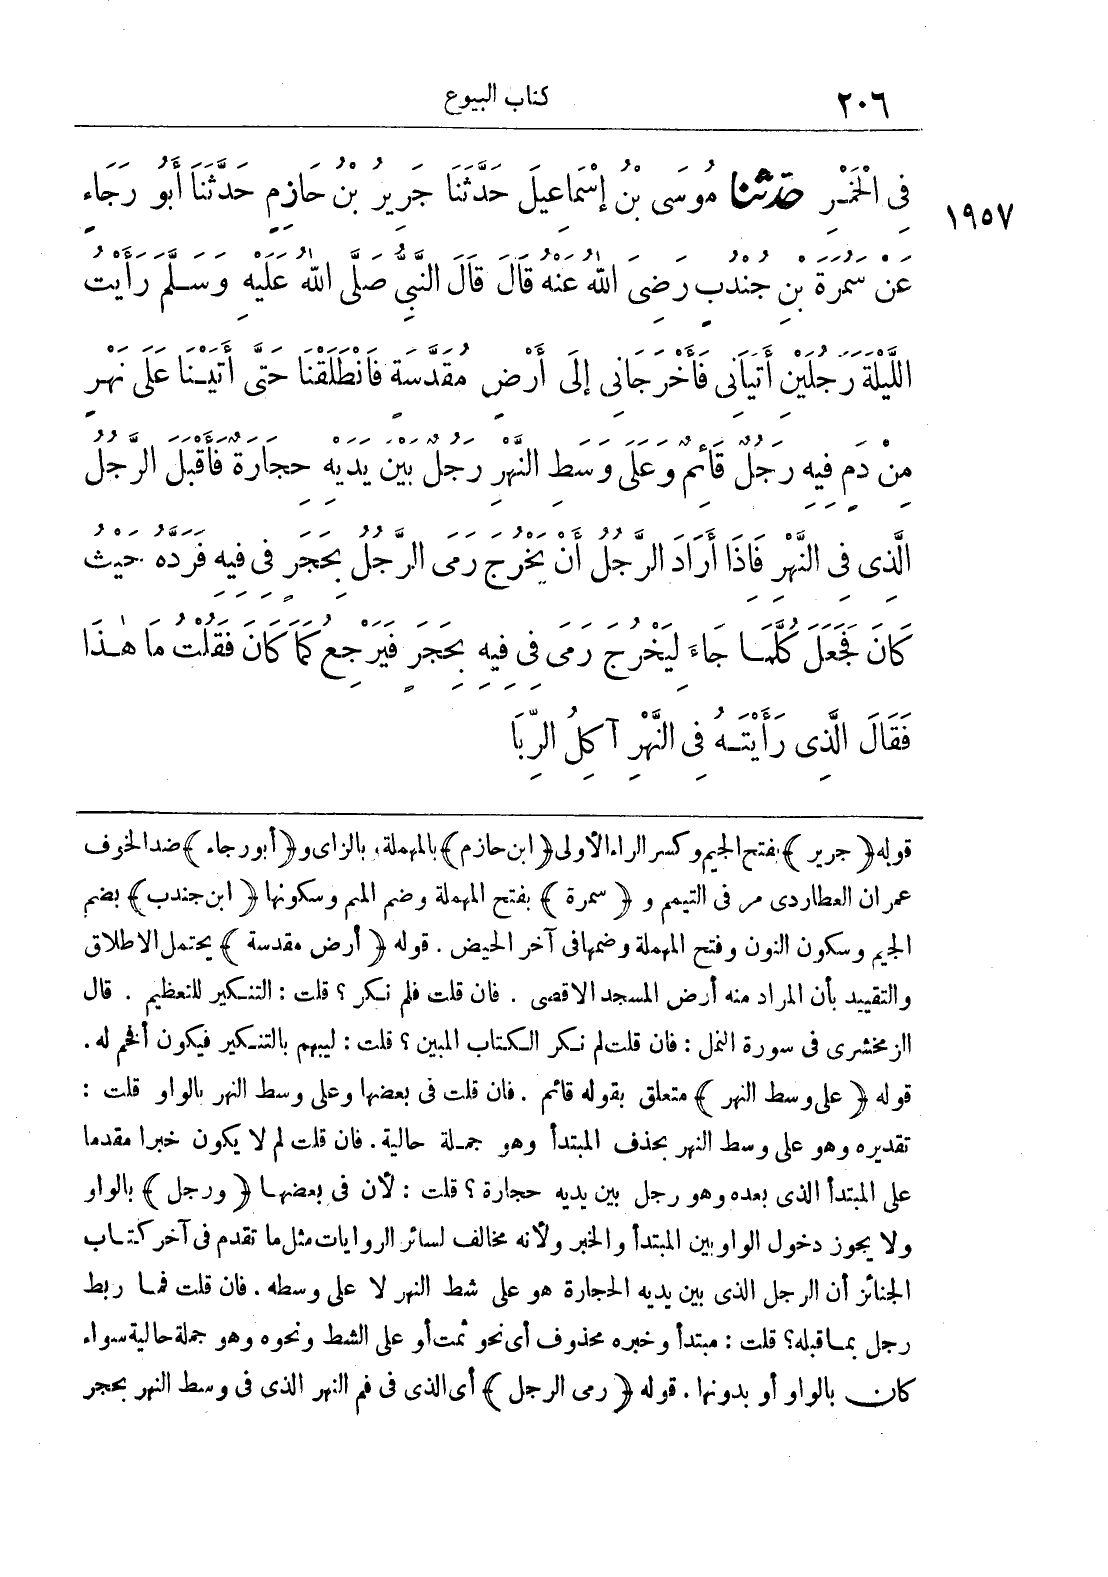 ٢٠٦ كتاب البيوع
فِى الْخَمْرِ حَدَّثَنَا مُوسَى بْنُ إِسْمَاعِيلَ حَدَّثَنَا جَرِيرُ بْنُ حَازِمٍ حَدَّثَنَا أَبُو رَجَاءٍ
١٩٥٧
عَنْ سَمُرَةَ بْنِ جُنْدُبٍ رَضِىَ اللّٰهُ عَنْهُ قَالَ قَالَ النَّبِىُّ صَلَّى اللّٰهُ عَلَيْهِ وَسَلَّمَ رَأَيْتُ
اللَّيْلَةَ رَجُلَيْنِ أَتَيَانِى فَأَخْرَجَانِى إِلَى أَرْضٍ مُقَدَّسَةٍ فَانْطَلَقْنَا حَتَّى أَتَيْنَا عَلَى نَهْرٍ
مِنْ دَمٍ فِيهِ رَجُلٌ قَائِمٌ وَعَلَى وَسَطِ النَّهْرِ رَجُلٌ بَيْنَ يَدَيْهِ حِجَارَةٌ فَأَقْبَلَ الرَّجُلُ
الَّذِى فِى النَّهْرِ فَإِذَا أَرَادَ الرَّجُلُ أَنْ يَخْرُجَ رَمَى الرَّجُلُ بِحَجَرٍ فِى فِيهِ فَرَدَّهُ حَيْثُ
كَانَ فَجَعَلَ كُلَّمَا جَاءَ لِيَخْرُجَ رَمَى فِى فِيهِ بِحَجَرٍ فَيَرْجِعُ كَمَا كَانَ فَقُلْتُ مَا هٰذَا
فَقَالَ الَّذِى رَأَيْتَهُ فِى النَّهْرِ آكِلُ الرِّبَا
قوله ﴿جرير﴾ بفتح الجيم وكسر الراء الأولى ﴿ابن حازم﴾ بالمهملة، بالزاى و﴿أبو رجاء﴾ ضد الخوف
عمران العطاردى مر فى التيمم و ﴿سمرة﴾ بفتح المهملة وضم الميم وسكونها ﴿ابن جندب﴾ بضم
الجيم وسكون النون وفتح المهملة وضمها فى آخر الحيض. قوله ﴿أرض مقدسة﴾ يحتمل الاطلاق
والتقييد بأن المراد منه أرض المسجد الاقصى. فان قلت فلم نكر؟ قلت: التنكير للتعظيم. قال
الزمخشرى فى سورة النمل: فان قلت لم نكر الكتاب المبين؟ قلت: ليبهم بالتنكير فيكون أفخم له.
قوله ﴿على وسط النهر﴾ متعلق بقوله قائم. فان قلت فى بعضها وعلى وسط النهر بالواو قلت:
تقديره وهو على وسط النهر بحذف المبتدأ وهو جملة حالية. فان قلت لم لا يكون خبرا مقدما
على المبتدأ الذى بعده وهو رجل بين يديه حجارة؟ قلت: لأن فى بعضها ﴿ورجل﴾ بالواو
ولا يجوز دخول الواو بين المبتدأ والخبر ولأنه مخالف لسائر الروايات مثل ما تقدم فى آخر كتاب
الجنائز أن الرجل الذى بين يديه الحجارة هو على شط النهر لا على وسطه. فان قلت فما ربط
رجل بما قبله؟ قلت: مبتدأ وخبره محذوف أى نحو ثمت أو على الشط ونحوه وهو جملة حالية سواء
كان بالواو أو بدونها. قوله ﴿رمى الرجل﴾ أى الذى فى فم النهر الذى فى وسط النهر بحجر